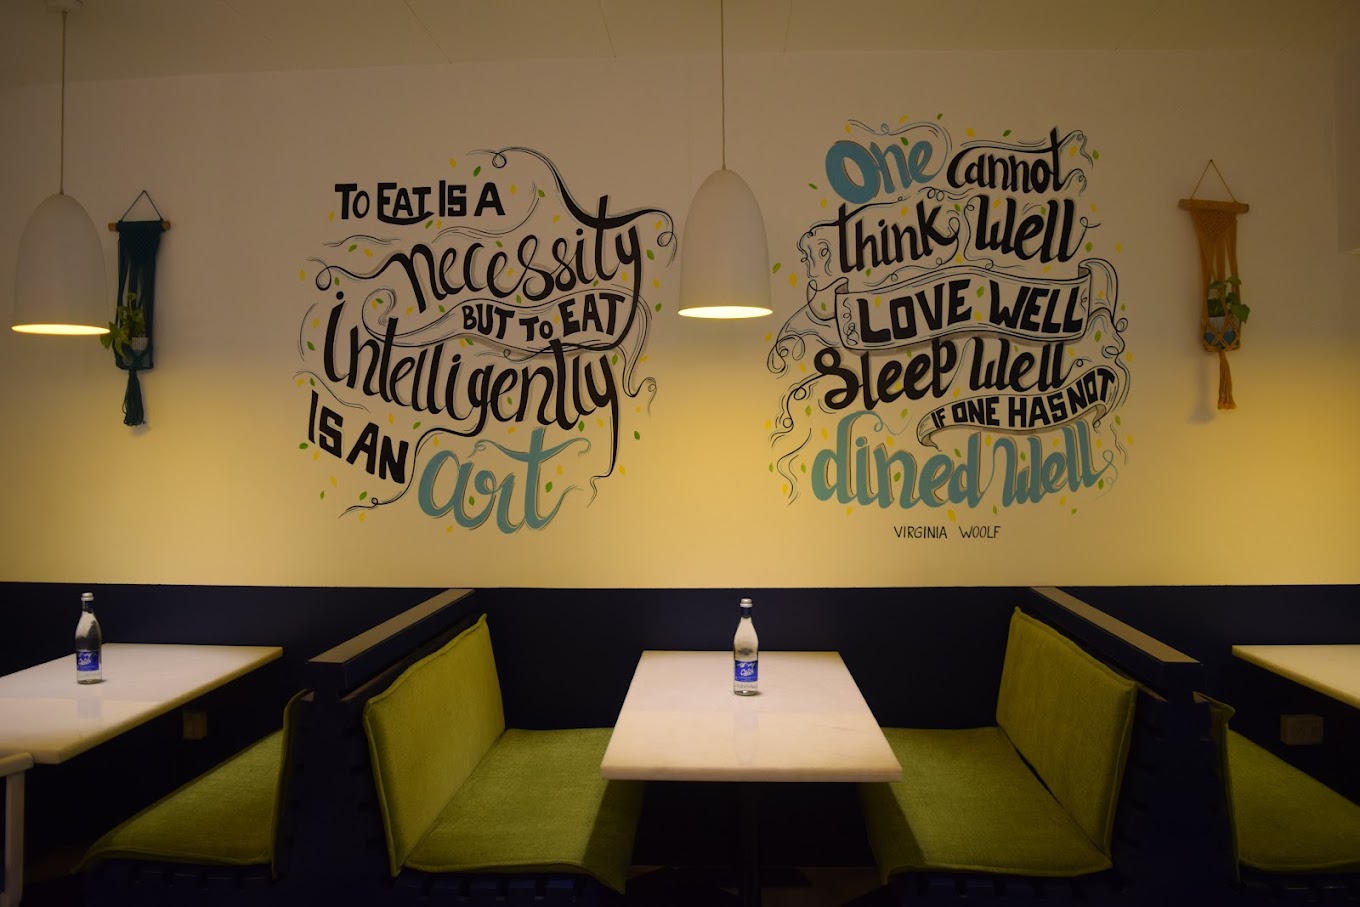 TO EAT IS A
necessity
BUT TO EAT
intelligently
IS AN
art
One cannot
think well
LOVE WELL
Sleep well
IF ONE HAS NOT
dined well
VIRGINIA WOOLF